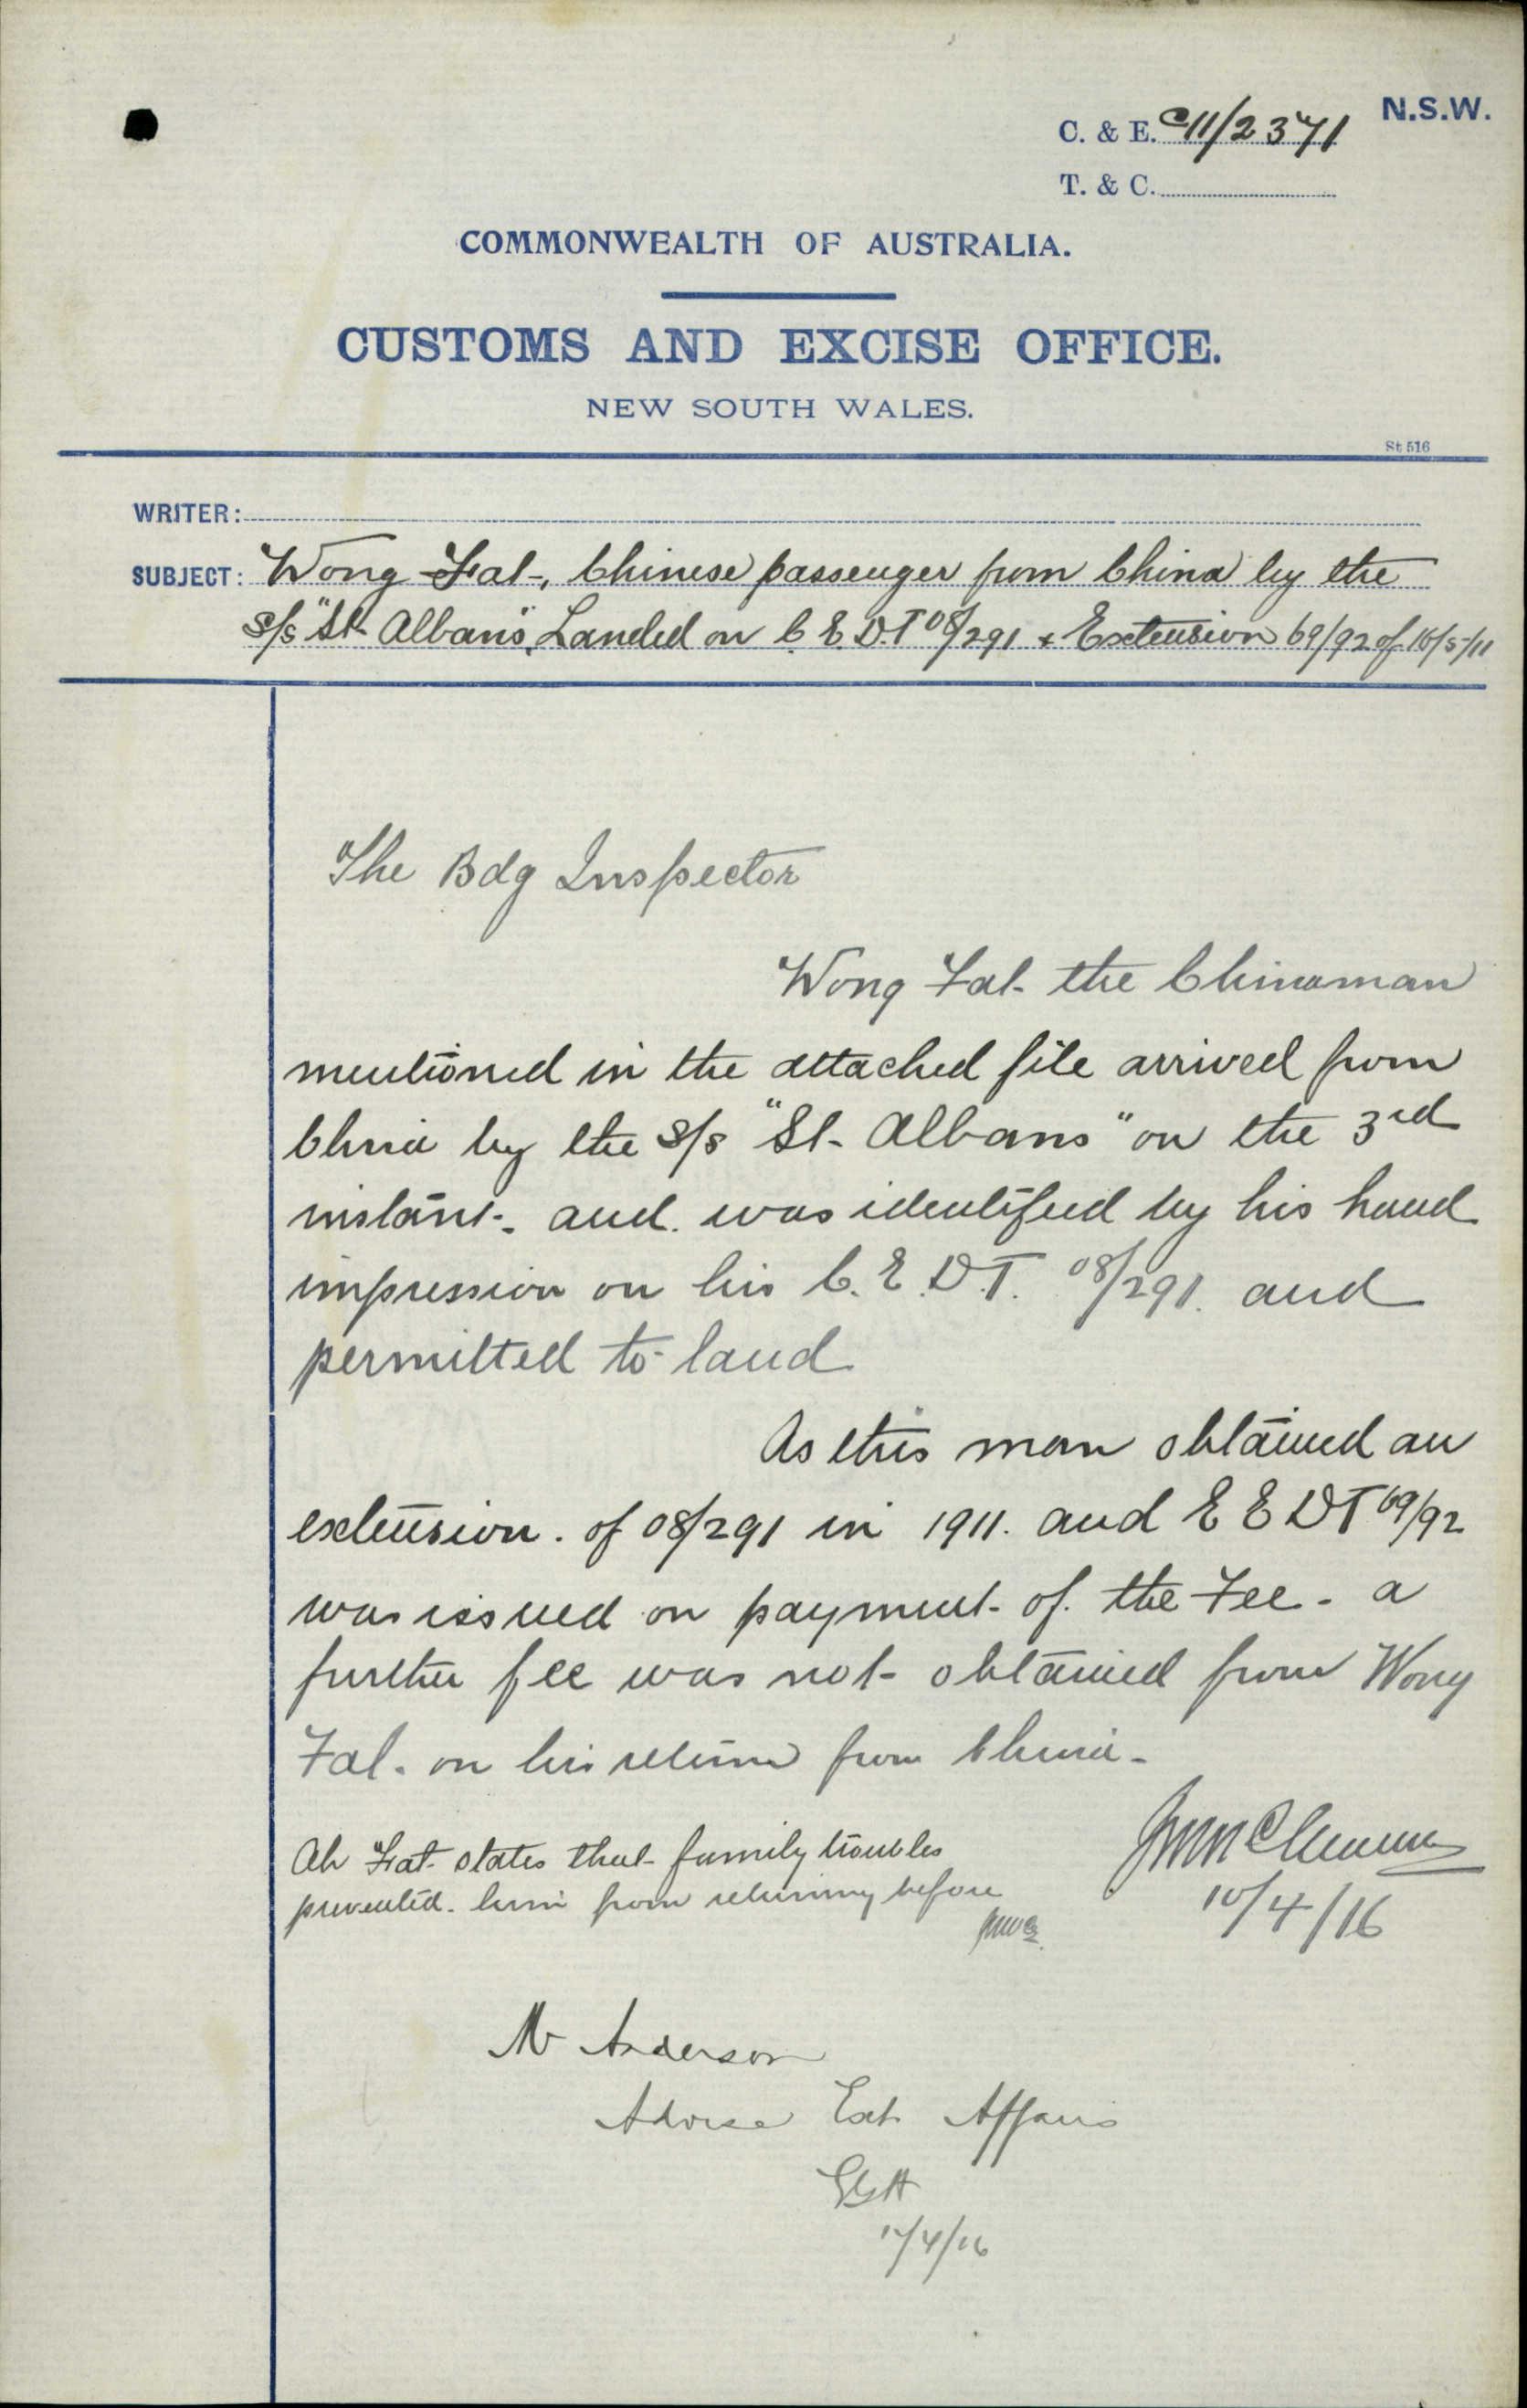 N.S.W.
C. & E. C11/2371
T. & C.
COMMONWEALTH OF AUSTRALIA.
CUSTOMS AND EXCISE OFFICE.
NEW SOUTH WALES.
St 516
WRITER:
SUBJECT: Wong Fat, Chinese passenger from China by the
s/s "St Albans", Landed on C.E.D.T 08/291 & Extension 69/92 of /5/11
The Bdg Inspector
Wong Fat the Chinaman
mentioned in the attached file arrived from
China by the s/s "St Albans" on the 3rd
instant and was identified by his hand
impression on his C.E.D.T. 08/291. and
permitted to land
As this man obtained an
extension of 08/291 in 1911. and E E DT 69/92
was issued on payment of the Fee - a
further fee was not obtained from Wong
Fat. on his return from China -
Ah Fat states that family troubles
prevented him from returning before
10/4/16
Mr Anderson
Advise Ext Affairs
/4/16